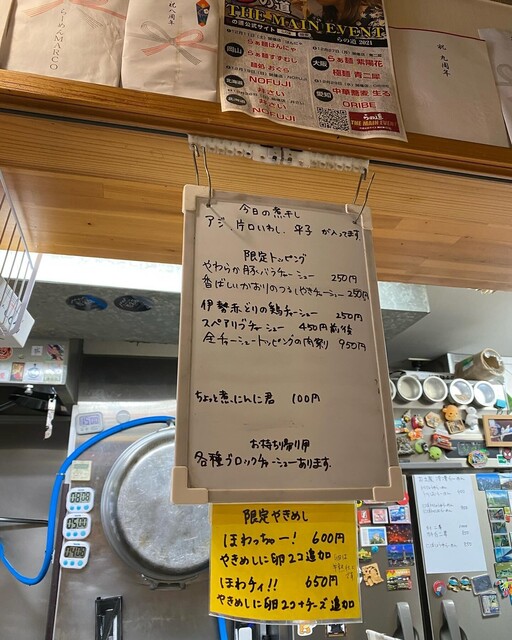 祝八周年
らーめんMARCO
祝 九周年
の道
THE MAIN EVENT
の道公式サイト
らの道 2021
岡山
らぁ麺はんにゃ
らぁ麺すずむし
麺処 おぐら
NOFUJI
おさい
NOFUJI
大阪
らぁ麺 紫陽花
極麺 青二犀
愛知
中華麺麦 生る
ORIBE
らの道
THE MAIN EVENT
今日の煮干し
アジ、片口いわし、平子 が入ってます
限定トッピング
やわらか豚バラチャーシュー 250円
香ばしいかおりのつるしやきチャーシュー 250円
伊勢赤どりの鶏チャーシュー 250円
スペアリブチャーシュー 450円前後
全チャーシュートッピングの肉祭り 950円
ちょっと煮にんに君 100円
お持ち帰り用
各種ブロックチャーシューあります。
限定やきめし
ほわっちゃー! 600円
やきめしに卵2コ追加
ほわチィ!! 650円
やきめしに卵2コ+チーズ追加